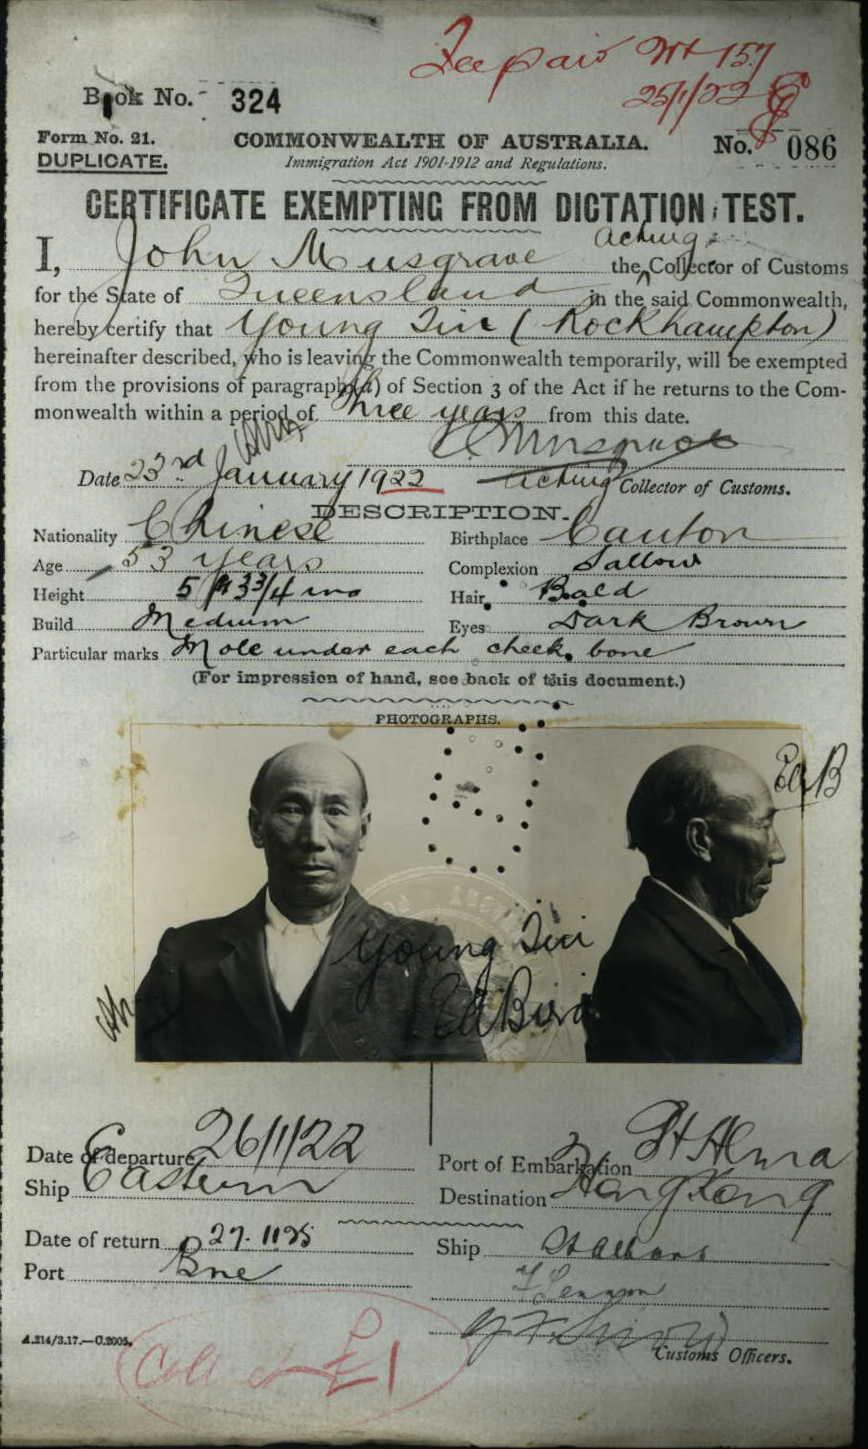 Fee paid No 157
25/1/22
Book No. 324
Form No. 21.
DUPLICATE.
COMMONWEALTH OF AUSTRALIA.
Immigration Act 1901-1912 and Regulations.
No. 086
CERTIFICATE EXEMPTING FROM DICTATION TEST.
acting
I, John Musgrave the Collector of Customs
for the State of Queensland in the said Commonwealth,
hereby certify that Young (Rockhampton)
hereinafter described, who is leaving the Commonwealth temporarily, will be exempted
from the provisions of paragraph (a) of Section 3 of the Act if he returns to the Com-
monwealth within a period of three years from this date.
Musgrave
Date 23rd January 1922 Acting Collector of Customs.
DESCRIPTION.
Nationality Chinese Birthplace Canton
Age 53 years Complexion Sallow
Height 5 ft 3 3/4 ins Hair Bald
Build Medium Eyes Dark Brown
Particular marks Mole under each cheek bone
(For impression of hand, see back of this document.)
PHOTOGRAPHS.
Young
Date of departure 26/1/22 Port of Embarkation
Ship Eastern Destination Hong Kong
Date of return Ship St Albans
Port Bne
Customs Officers.
A.214/3.17.—C.2005.
£1